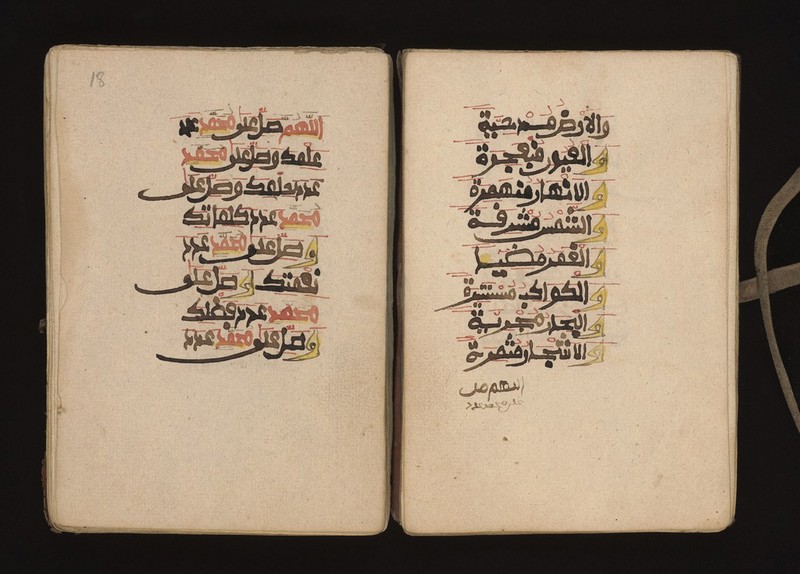 والارض مدحية
والعيون منفجرة
والانهار منهمرة
والشمس مشرقة
والقمر مضيا
والكواكب مستنيرة
والبحار مجرية
والاشجار مثمرة
اللهم صل
على محمد عدد
18
اللهم صل على محمد عدد
علمك وصل على محمد
عدد حلمك وصل على
محمد عدد كلماتك
وصل على محمد عدد
نعمتك وصل على
محمد عدد فضلك
وصل على محمد عدد